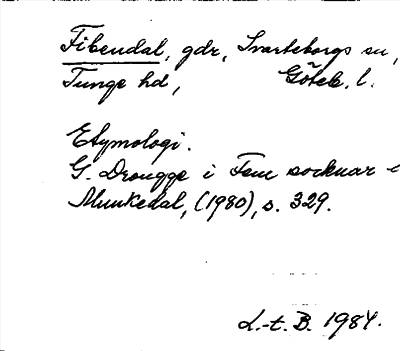 Fibendal, gdr, Svarteborgs sn,
Tunge hd, Göteb. l.
Etymologi.
G. Drougge i Fem socknar i
Munkedal, (1980), s. 329.
L.-t. B. 1984.